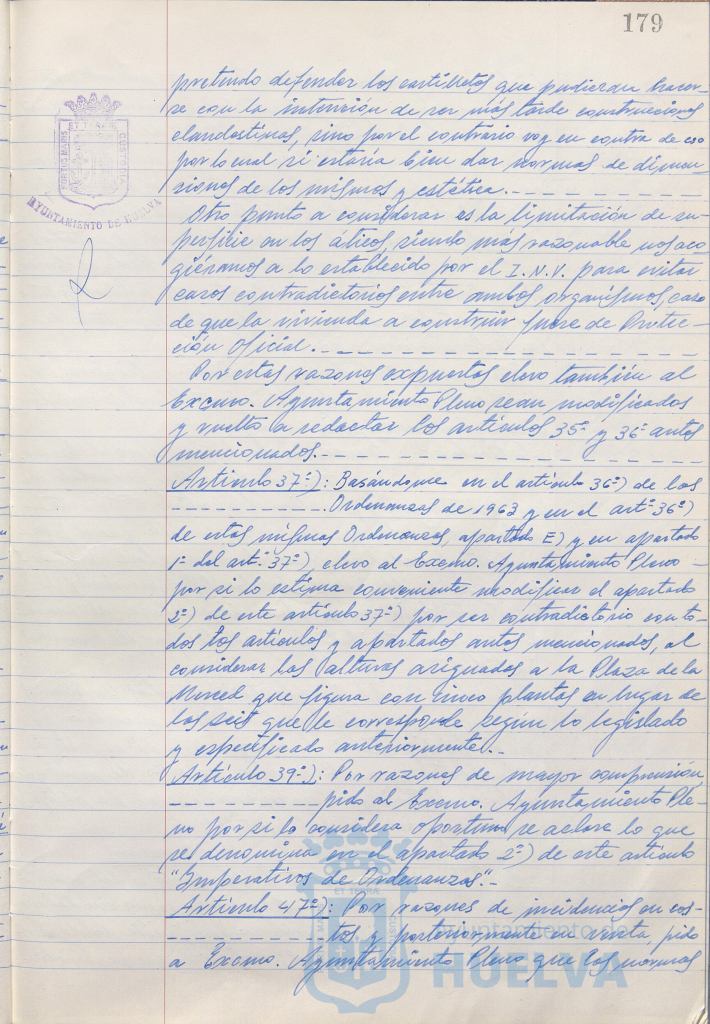 179
pretendo defender los castilletes que pudieran hacer-
se con la intención de ser más tarde construcciones
clandestinas, sino por el contrario voy en contra de eso
por lo cual si estaría bien dar normas de dimen-
siones de los mismos y estética.
PORTUS MARIS ET TERRAE CUSTODIA
AYUNTAMIENTO DE HUELVA
Otro punto a considerar es la limitación de su-
perficie en los áticos, siendo más razonable nos aco-
giéramos a lo establecido por el I.N.V. para evitar
casos contradictorios entre ambos organismos, caso
de que la vivienda a construir fuese de Protec-
ción Oficial.
Por estas razones expuestas elevo también al
Excmo. Ayuntamiento Pleno sean modificados
y vuelto a redactar los artículos 35º y 36º antes
mencionados.
Artículo 37º): Basándome en el artículo 36º) de las
Ordenanzas de 1963 y en el artº 36º)
de estas mismas Ordenanzas, apartado E) y en apartado
1º del artº 37º), elevo al Excmo. Ayuntamiento Pleno
por si lo estima conveniente modificar el apartado
2º) de este artículo 37º) por ser contradictorio con to-
dos los artículos y apartados antes mencionados, al
considerar las alturas asignadas a la Plaza de la
Merced que figura con cinco plantas en lugar de
las seis que le corresponde según lo legislado
y especificado anteriormente.
Artículo 39º): Por razones de mayor comprensión,
pido al Excmo. Ayuntamiento Ple-
no por si lo considera oportuno se aclare lo que
se denomina en el apartado 2º) de este artículo
"Imperativos de Ordenanzas".
Artículo 47º): Por razones de incidencias en cos-
tos y posteriormente en venta pido
a Excmo. Ayuntamiento Pleno que las normas
Ayuntamiento de
HUELVA